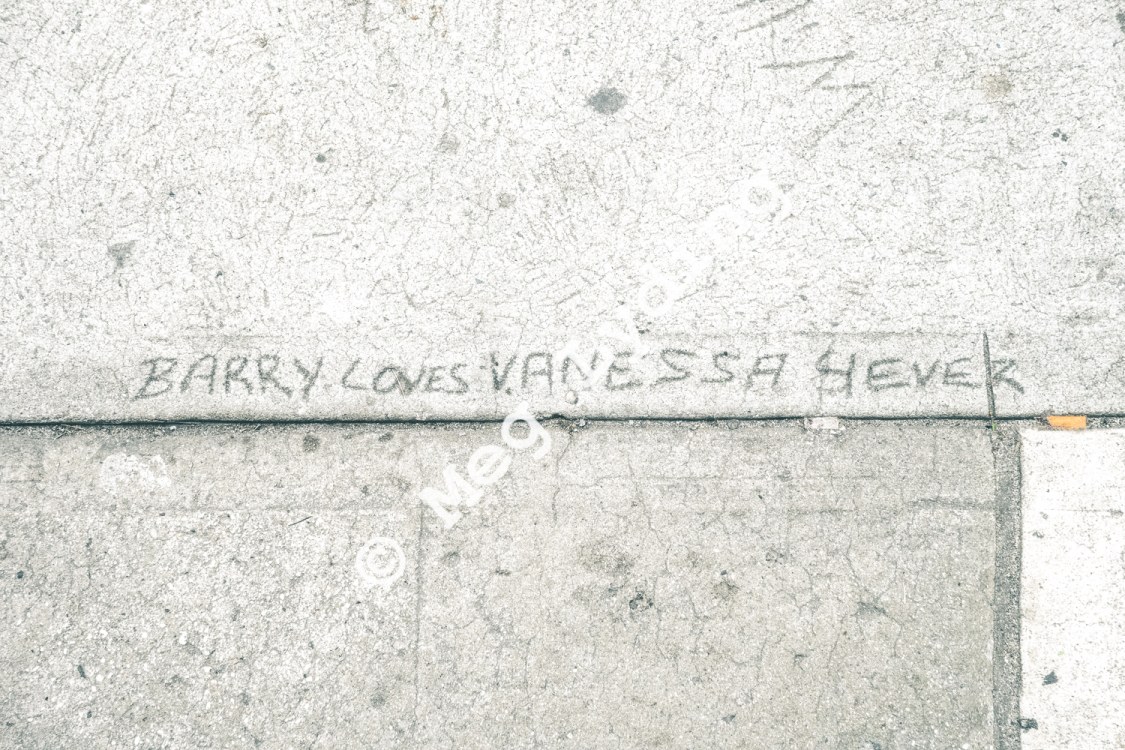 BARRY LOVES VANESSA 4EVER